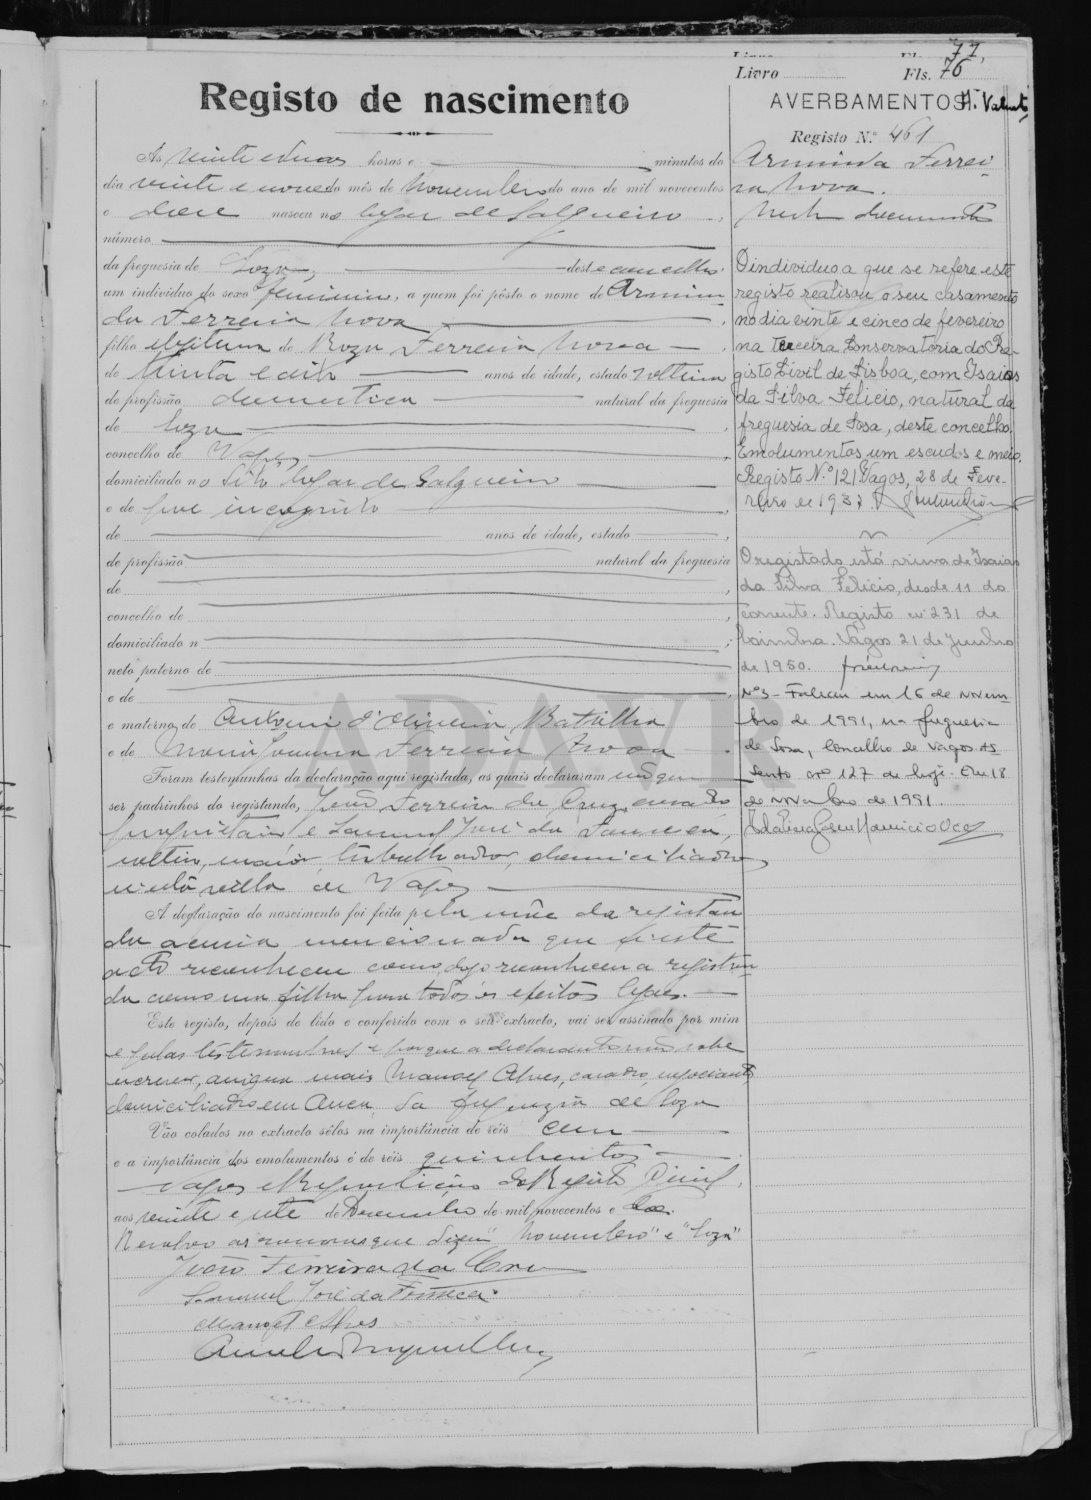 Livro Fls. 77,
Livro Fls. 76
Registo de nascimento
Às vinte e duas horas e minutos do
dia vinte e nove do mês de Novembro do ano de mil novecentos
e doze nasceu no logar de Salgueiro
número
da freguesia de Soza, deste concelho.
um indivíduo do sexo feminino, a quem foi pôsto o nome de Armin
da Ferreira Nova
filho de Roza Ferreira Nova
de trinta e anos de idade, estado solteira
de profissão domestica natural da freguesia
de Soza
concelho de Vagos
domiciliado no dito logar de Salgueiro
e de pae incognito
de anos de idade, estado
de profissão natural da freguesia
de
concelho de
domiciliado n
neto paterno de
e de
e materno de Antonio d'Oliveira Batalha
e de Maria Joanna Ferreira Nova
Foram testemunhas da declaração aqui registada, as quais declararam não quer
ser padrinhos do registando, João Ferreira da Cruz, casado
e Samuel José da Fonseca,
solteiro, maior, trabalhador, domiciliados
n'esta villa de Vagos
A declaração do nascimento foi feita pela mãe da registan
da acima mencionada que n'este
acto reconheceu como logo reconheceu a registan
da como sua filha para todos os efeitos legaes.
Este registo, depois de lido e conferido com o seu extracto, vai ser assinado por mim
e pelas testemunhas e porque a declarante não sabe
escrever, assigna mais Manoel Alves, casado, negociante
domiciliado em da freguezia de Soza
Vão colados no extracto sêlos na importância de réis cem
e a importância dos emolumentos é de réis quinhentos
Vagos e Repartição do Registo Civil,
aos vinte e sete de Dezembro de mil novecentos e doze.
Resalvo as que dizem "Novembro" e "Soza"
João Ferreira da Cruz
Samuel José da Fonseca
Manoel Alves
AVERBAMENTOS
Registo N.º 461
Arminda Ferrei
ra Nova.
O individuo a que se refere este
registo realisou o seu casamento
no dia vinte e cinco de fevereiro
na terceira Conservatoria do Re-
gisto Civil de Lisboa, com Isaias
da Silva Felicio, natural da
freguesia de Sosa, deste concelho.
Emolumentos um escudo e meio.
Registo N.º 121 Vagos, 28 de Feve-
reiro de 1937.
O registado está viuva de Isaias
da Silva Felicio, desde 11 do
corrente. Registo nº 231 de
Coimbra. Vagos 21 de Junho
de 1950.
Nº3 - Faleceu em 16 de novem
bro de 1991, na freguesia
de Sosa, Concelho de Vagos. As
sento nº 127 de hoje. Em 18
de novembro de 1991.
ADAVR